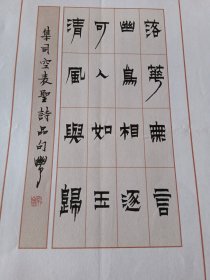 落華無言
幽鳥相逐
可人如玉
清風與歸
集司空表聖詩品句